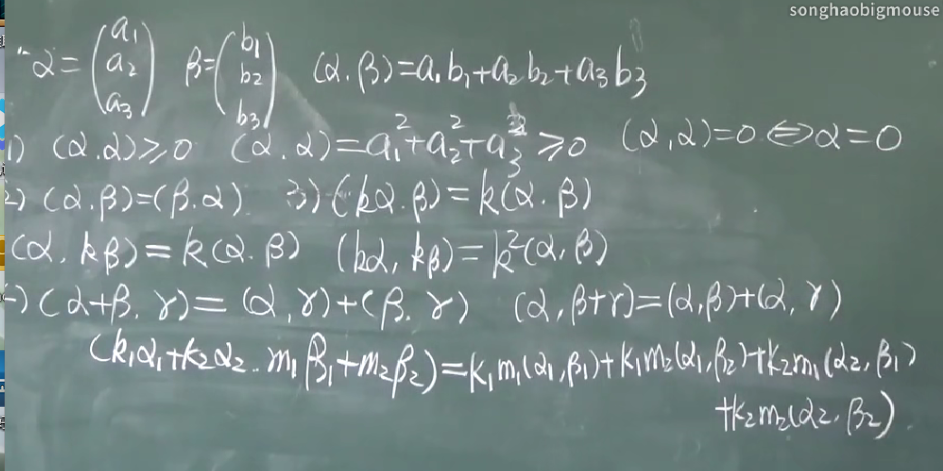 songhaobigmouse
α=(a₁ a₂ a₃) β=(b₁ b₂ b₃) (α.β)=a₁b₁+a₂b₂+a₃b₃
1) (α.α)≥0 (α.α)=a₁²+a₂²+a₃²≥0 (α,α)=0⇔α=0
2) (α.β)=(β.α). 3) (kα.β)=k(α.β)
(α,kβ)=k(α.β) (kα,kβ)=k²(α,β)
) (α+β.γ)=(α,γ)+(β.γ) (α,β+γ)=(α,β)+(α,γ)
(k₁α₁+k₂α₂..m₁β₁+m₂β₂)=k₁m₁(α₁,β₁)+k₁m₂(α₁,β₂)+k₂m₁(α₂,β₁)
+k₂m₂(α₂,β₂)